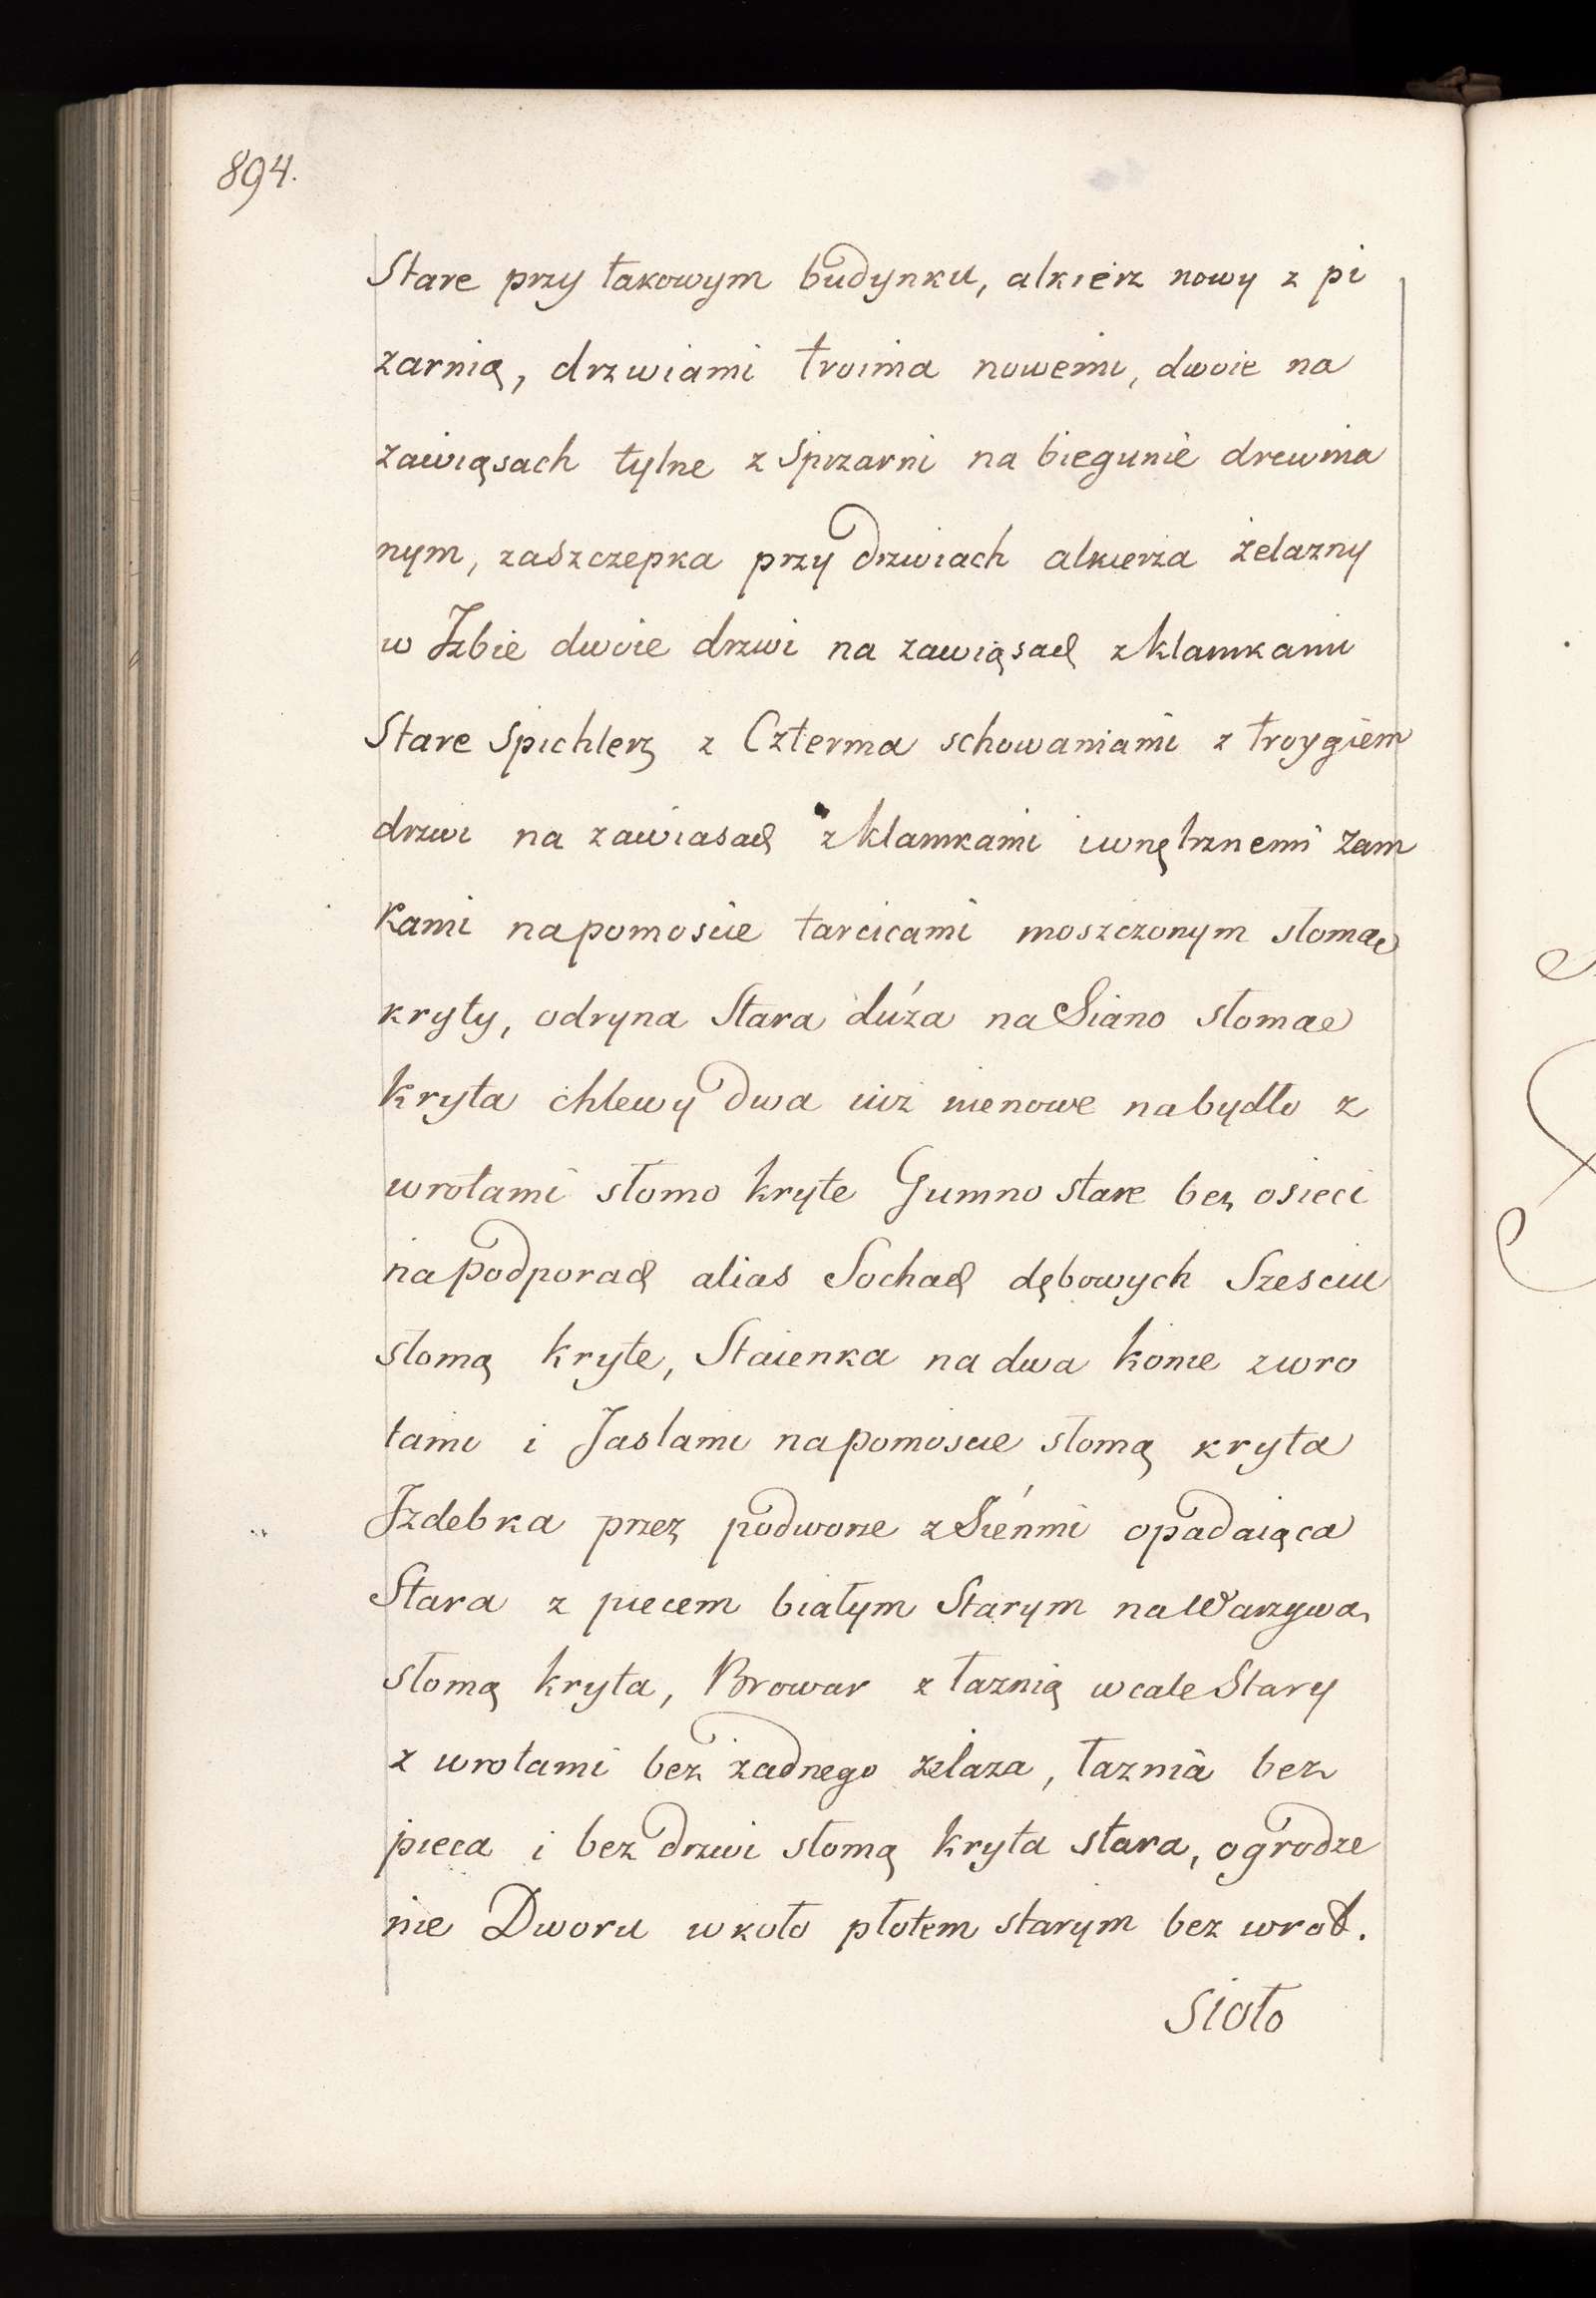 894.
Stare przy takowym budynku, alkierz nowy z pi
zarnią, drzwiami troima nowemi, dwoie na
zawiąsach tylne z Spizarni na biegunie drewnia
nym, zaszczepka przy drzwiach alkierza żelazny
w Jzbie dwoie drzwi na zawiąsach z klamkami
Stare Spichlerz z Czterma schowaniami z troygiem
drzwi na zawiasach z klamkami iwnętrznemi zam
kami na pomoscie tarcicami moszczonym słomae
kryty, odryna Stara duźa na Siano słomae
kryta chlewy dwa iuż nienowe na bydło z
wrotami słomo kryte Gumno stare bez osieci
na podporach alias Sochach dębowych Szesciu
słomą kryte, Staienka na dwa konie z wro
tami i Jasłami na pomoscie słomą kryta
Jzdebka przez podworze z Sieńmi opadaiąca
Stara z piecem białym Starym na Warzywa,
słomą kryta, Browar z łaznią wcale Stary
z wrotami bez żadnego żelaza, łaznia bez
pieca i bez drzwi słomą kryta stara, ogrodze
nie Dworu wkoło płotem starym bez wrot.
Sioło